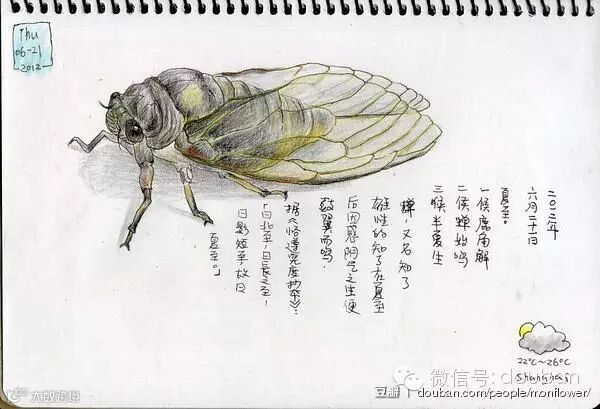 Thu
06-21
2012
二〇一二年
六月二十一日
夏至。
一候鹿角解
二候蝉始鸣
三候半夏生
蝉,又名知了
雄性的知了在夏至
后因感阴气之生便
鼓翼而鸣.
据《恪遵宪度抄本》:
「日北至,日長之至,
日影短至,故曰
夏至。」
22°C~26°C
Shanghai
微信号: douban
豆瓣
douban.com/people/monflower/
大数跨境